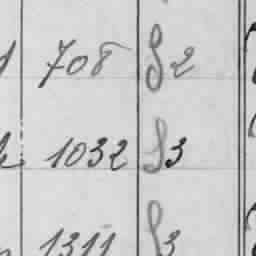 708 § 2
1032 § 3
1311 § 3